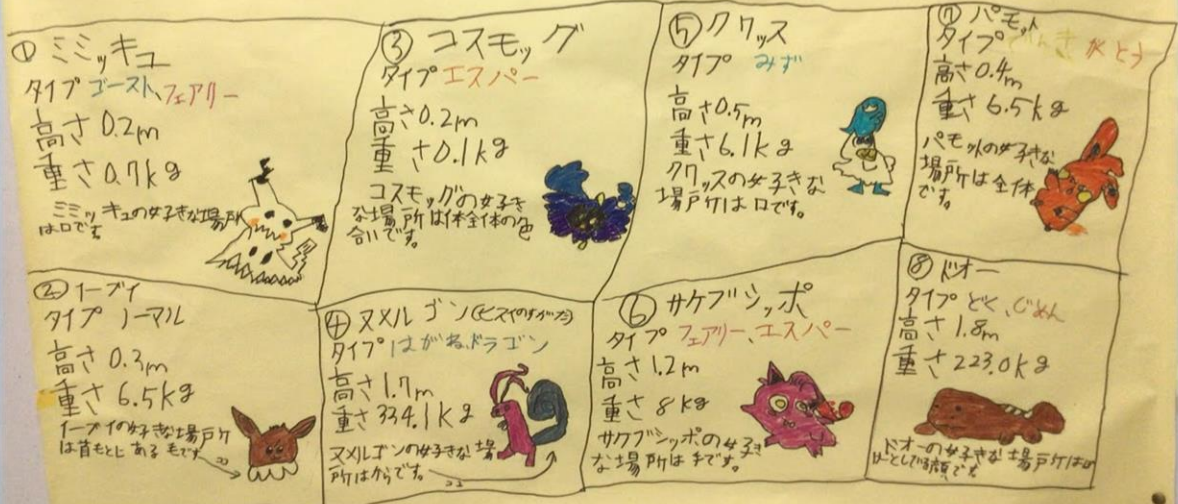 ① ミミッキュ
タイプ ゴースト、フェアリー
高さ 0.2m
重さ 0.7kg
ミミッキュの好きな場所
は口です。
② イーブイ
タイプ ノーマル
高さ 0.3m
重さ 6.5kg
イーブイの好きな場所
は首もとにある毛です。
③ コスモッグ
タイプ エスパー
高さ0.2m
重さ0.1kg
コスモッグの好き
な場所は体全体の色
合いです。
④ ヌメルゴン(ヒスイのすがた)
タイプ はがね、ドラゴン
高さ1.7m
重さ334.1kg
ヌメルゴンの好きな場
所はからです。
⑤ クワッス
タイプ みず
高さ0.5m
重さ6.1kg
クワッスの好きな
場所は口です。
⑥ サケブシッポ
タイプ フェアリー、エスパー
高さ1.2m
重さ 8kg
サケブシッポの好き
な場所は手です。
⑦ パモット
タイプ でんき かくとう
高さ0.4m
重さ6.5kg
パモットの好きな
場所は全体
です。
⑧ ドオー
タイプ どく、じめん
高さ1.8m
重さ223.0kg
ドオーの好きな場所は
ーとしている顔です。